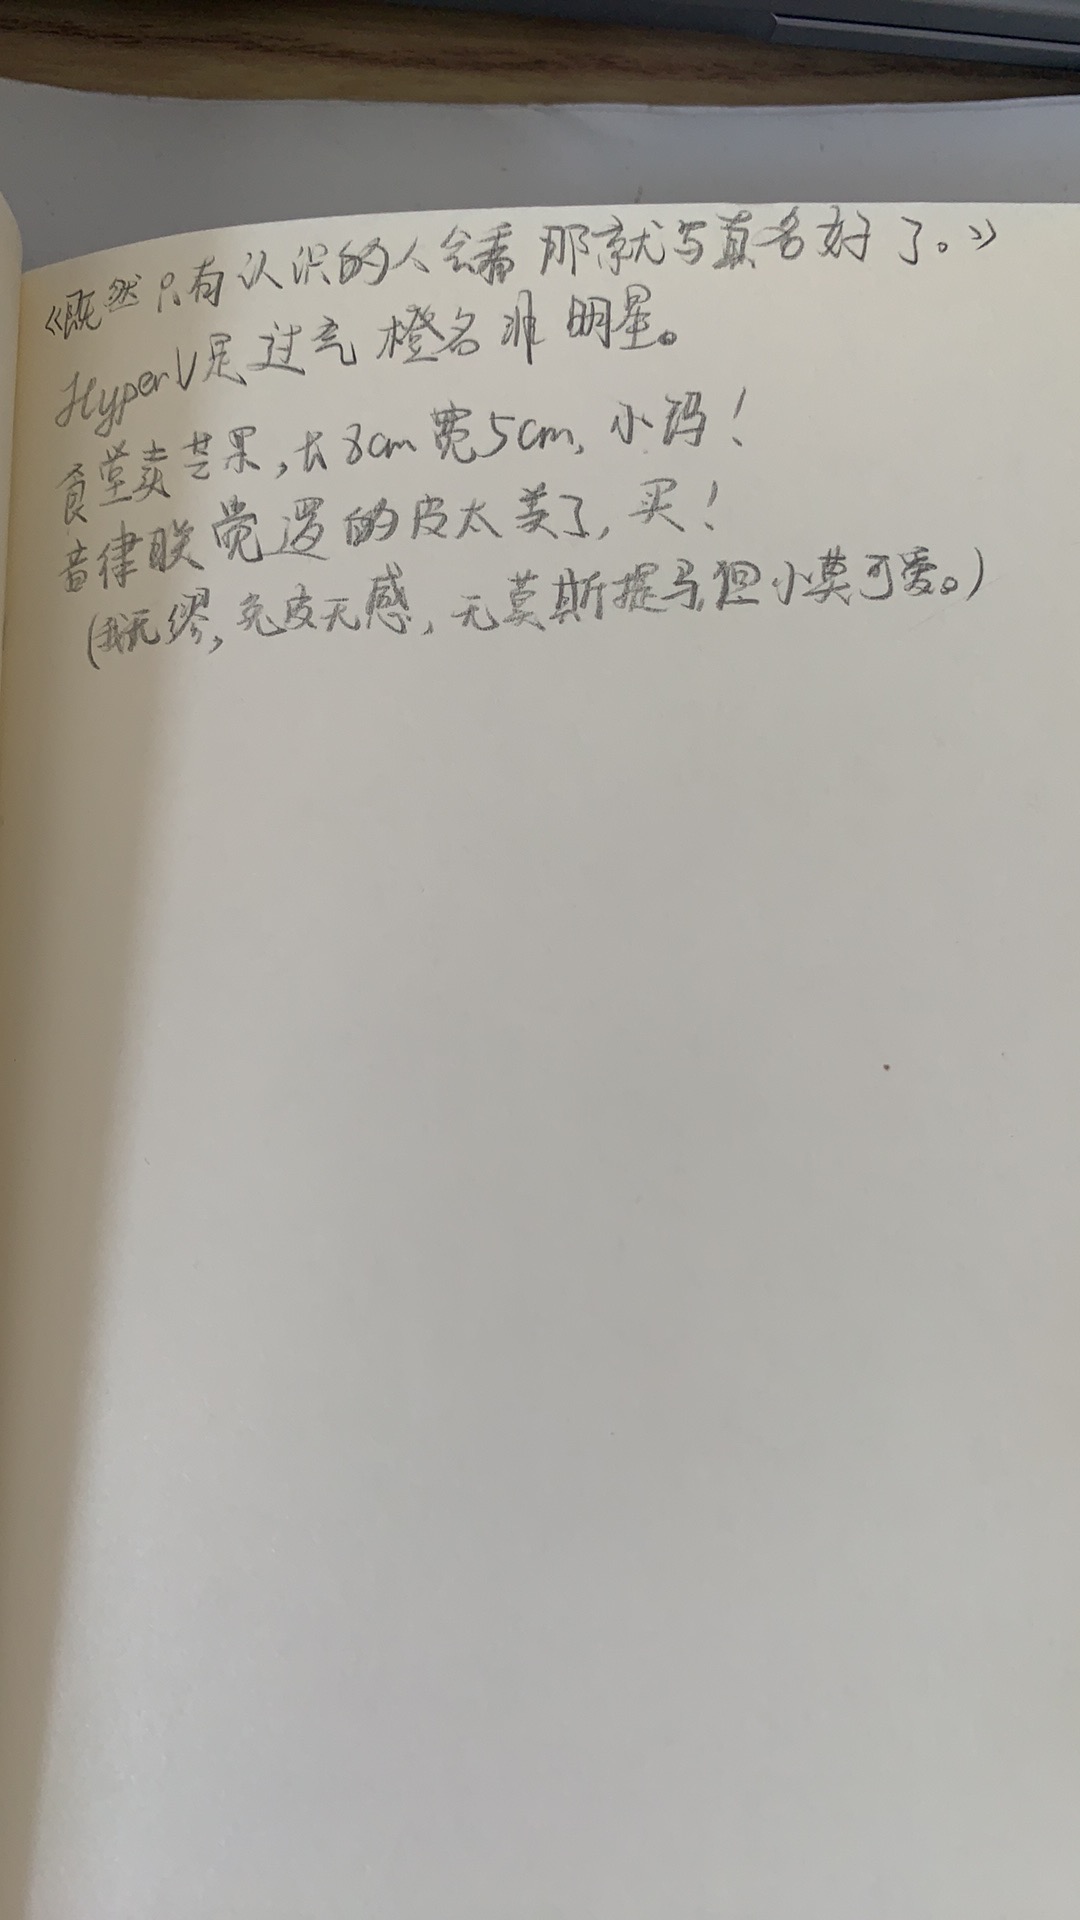 《既然只有认识的人会看 那就写真名好了。》
HyperV是过气橙名非明星。
食堂卖芒果,长8cm宽5cm,小玛!
音律联觉逻的皮太美了,买!
(我无缪,免疫无感,无莫斯提马但小莫可爱。)